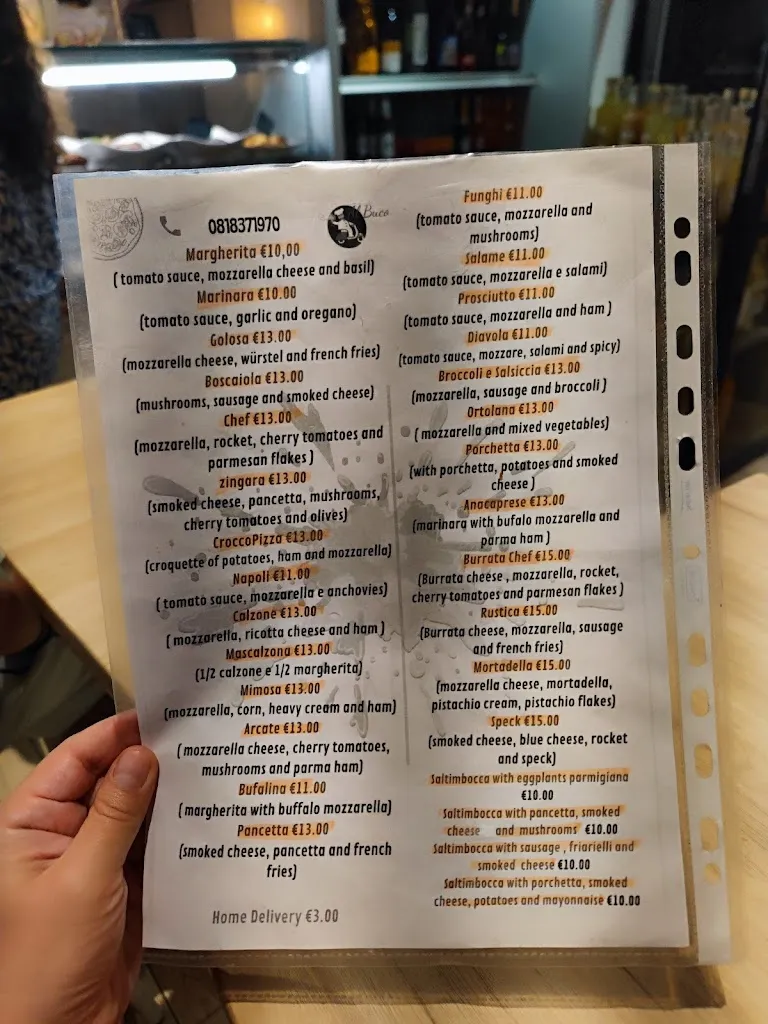 0818371970
Buco
Margherita €10,00
( tomato sauce, mozzarella cheese and basil)
Marinara €10.00
(tomato sauce, garlic and oregano)
Golosa €13.00
(mozzarella cheese, würstel and french fries)
Boscaiola €13.00
(mushrooms, sausage and smoked cheese)
Chef €13.00
(mozzarella, rocket, cherry tomatoes and
parmesan flakes )
zingara €13.00
(smoked cheese, pancetta, mushrooms,
cherry tomatoes and olives)
CroccoPizza €13.00
(croquette of potatoes, ham and mozzarella)
Napoli €11.00
( tomato sauce, mozzarella e anchovies)
Calzone €13.00
( mozzarella, ricotta cheese and ham )
Mascalzona €13.00
(1/2 calzone e 1/2 margherita)
Mimosa €13.00
(mozzarella, corn, heavy cream and ham)
Arcate €13.00
( mozzarella cheese, cherry tomatoes,
mushrooms and parma ham)
Bufalina €11.00
( margherita with buffalo mozzarella)
Pancetta €13.00
(smoked cheese, pancetta and french
fries)
Home Delivery €3.00
Funghi €11.00
(tomato sauce, mozzarella and
mushrooms)
Salame €11.00
(tomato sauce, mozzarella e salami)
Prosciutto €11.00
(tomato sauce, mozzarella and ham )
Diavola €11.00
(tomato sauce, mozzare, salami and spicy)
Broccoli e Salsiccia €13.00
(mozzarella, sausage and broccoli )
Ortolana €13.00
( mozzarella and mixed vegetables)
Porchetta €13.00
(with porchetta, potatoes and smoked
cheese )
Anacaprese €13.00
(marinara with bufalo mozzarella and
parma ham )
Burrata Chef €15.00
(Burrata cheese , mozzarella, rocket,
cherry tomatoes and parmesan flakes )
Rustica €15.00
(Burrata cheese, mozzarella, sausage
and french fries)
Mortadella €15.00
(mozzarella cheese, mortadella,
pistachio cream, pistachio flakes)
Speck €15.00
(smoked cheese, blue cheese, rocket
and speck)
Saltimbocca with eggplants parmigiana
€10.00
Saltimbocca with pancetta, smoked
cheese and mushrooms €10.00
Saltimbocca with sausage , friarielli and
smoked cheese €10.00
Saltimbocca with porchetta, smoked
cheese, potatoes and mayonnaise €10.00